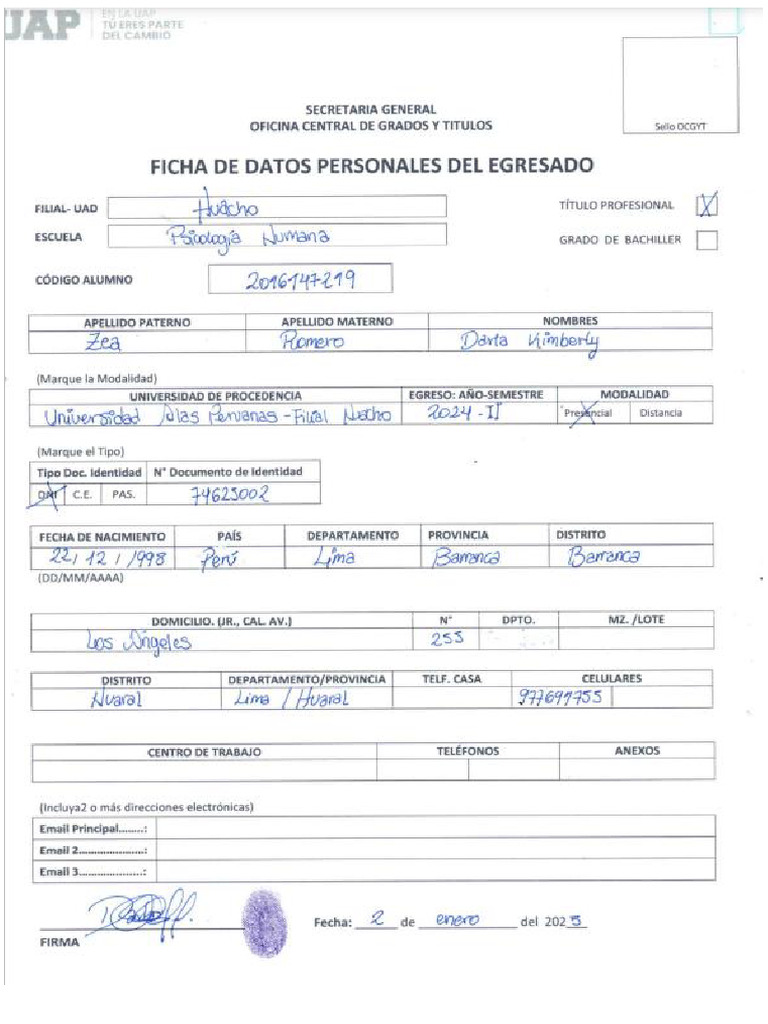 UAP
EN LA UAP
TÚ ERES PARTE
DEL CAMBIO
Sello OCGYT
SECRETARIA GENERAL
OFICINA CENTRAL DE GRADOS Y TITULOS
FICHA DE DATOS PERSONALES DEL EGRESADO
FILIAL- UAD Huacho TÍTULO PROFESIONAL X
ESCUELA Psicología Humana GRADO DE BACHILLER
CÓDIGO ALUMNO 2016147219
APELLIDO PATERNO APELLIDO MATERNO NOMBRES
Zea Romero Darta Kimberly
(Marque la Modalidad)
UNIVERSIDAD DE PROCEDENCIA EGRESO: AÑO-SEMESTRE MODALIDAD
Universidad Alas Peruanas - Filial Huacho 2024 - II Presencial Distancia
(Marque el Tipo)
Tipo Doc. Identidad N° Documento de Identidad
DNI C.E. PAS. 74625002
FECHA DE NACIMIENTO PAÍS DEPARTAMENTO PROVINCIA DISTRITO
22/12/1998 Perú Lima Barranca Barranca
(DD/MM/AAAA)
DOMICILIO. (JR., CAL. AV.) N° DPTO. MZ. /LOTE
Los Ángeles 255
DISTRITO DEPARTAMENTO/PROVINCIA TELF. CASA CELULARES
Huaral Lima / Huaral 977697755
CENTRO DE TRABAJO TELÉFONOS ANEXOS
(Incluya2 o más direcciones electrónicas)
Email Principal........:
Email 2......................:
Email 3......................:
Fecha: 2 de enero del 2025
FIRMA